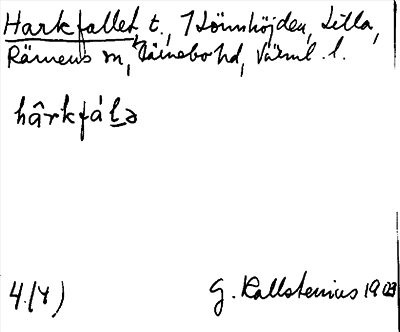 Harkfallet, t., 7 Lönnhöjden, Lilla,
Rämens sn, Färnebo hd, Värml. l.
hârkfá'lə
4.(r)
G. Kallstenius 1903